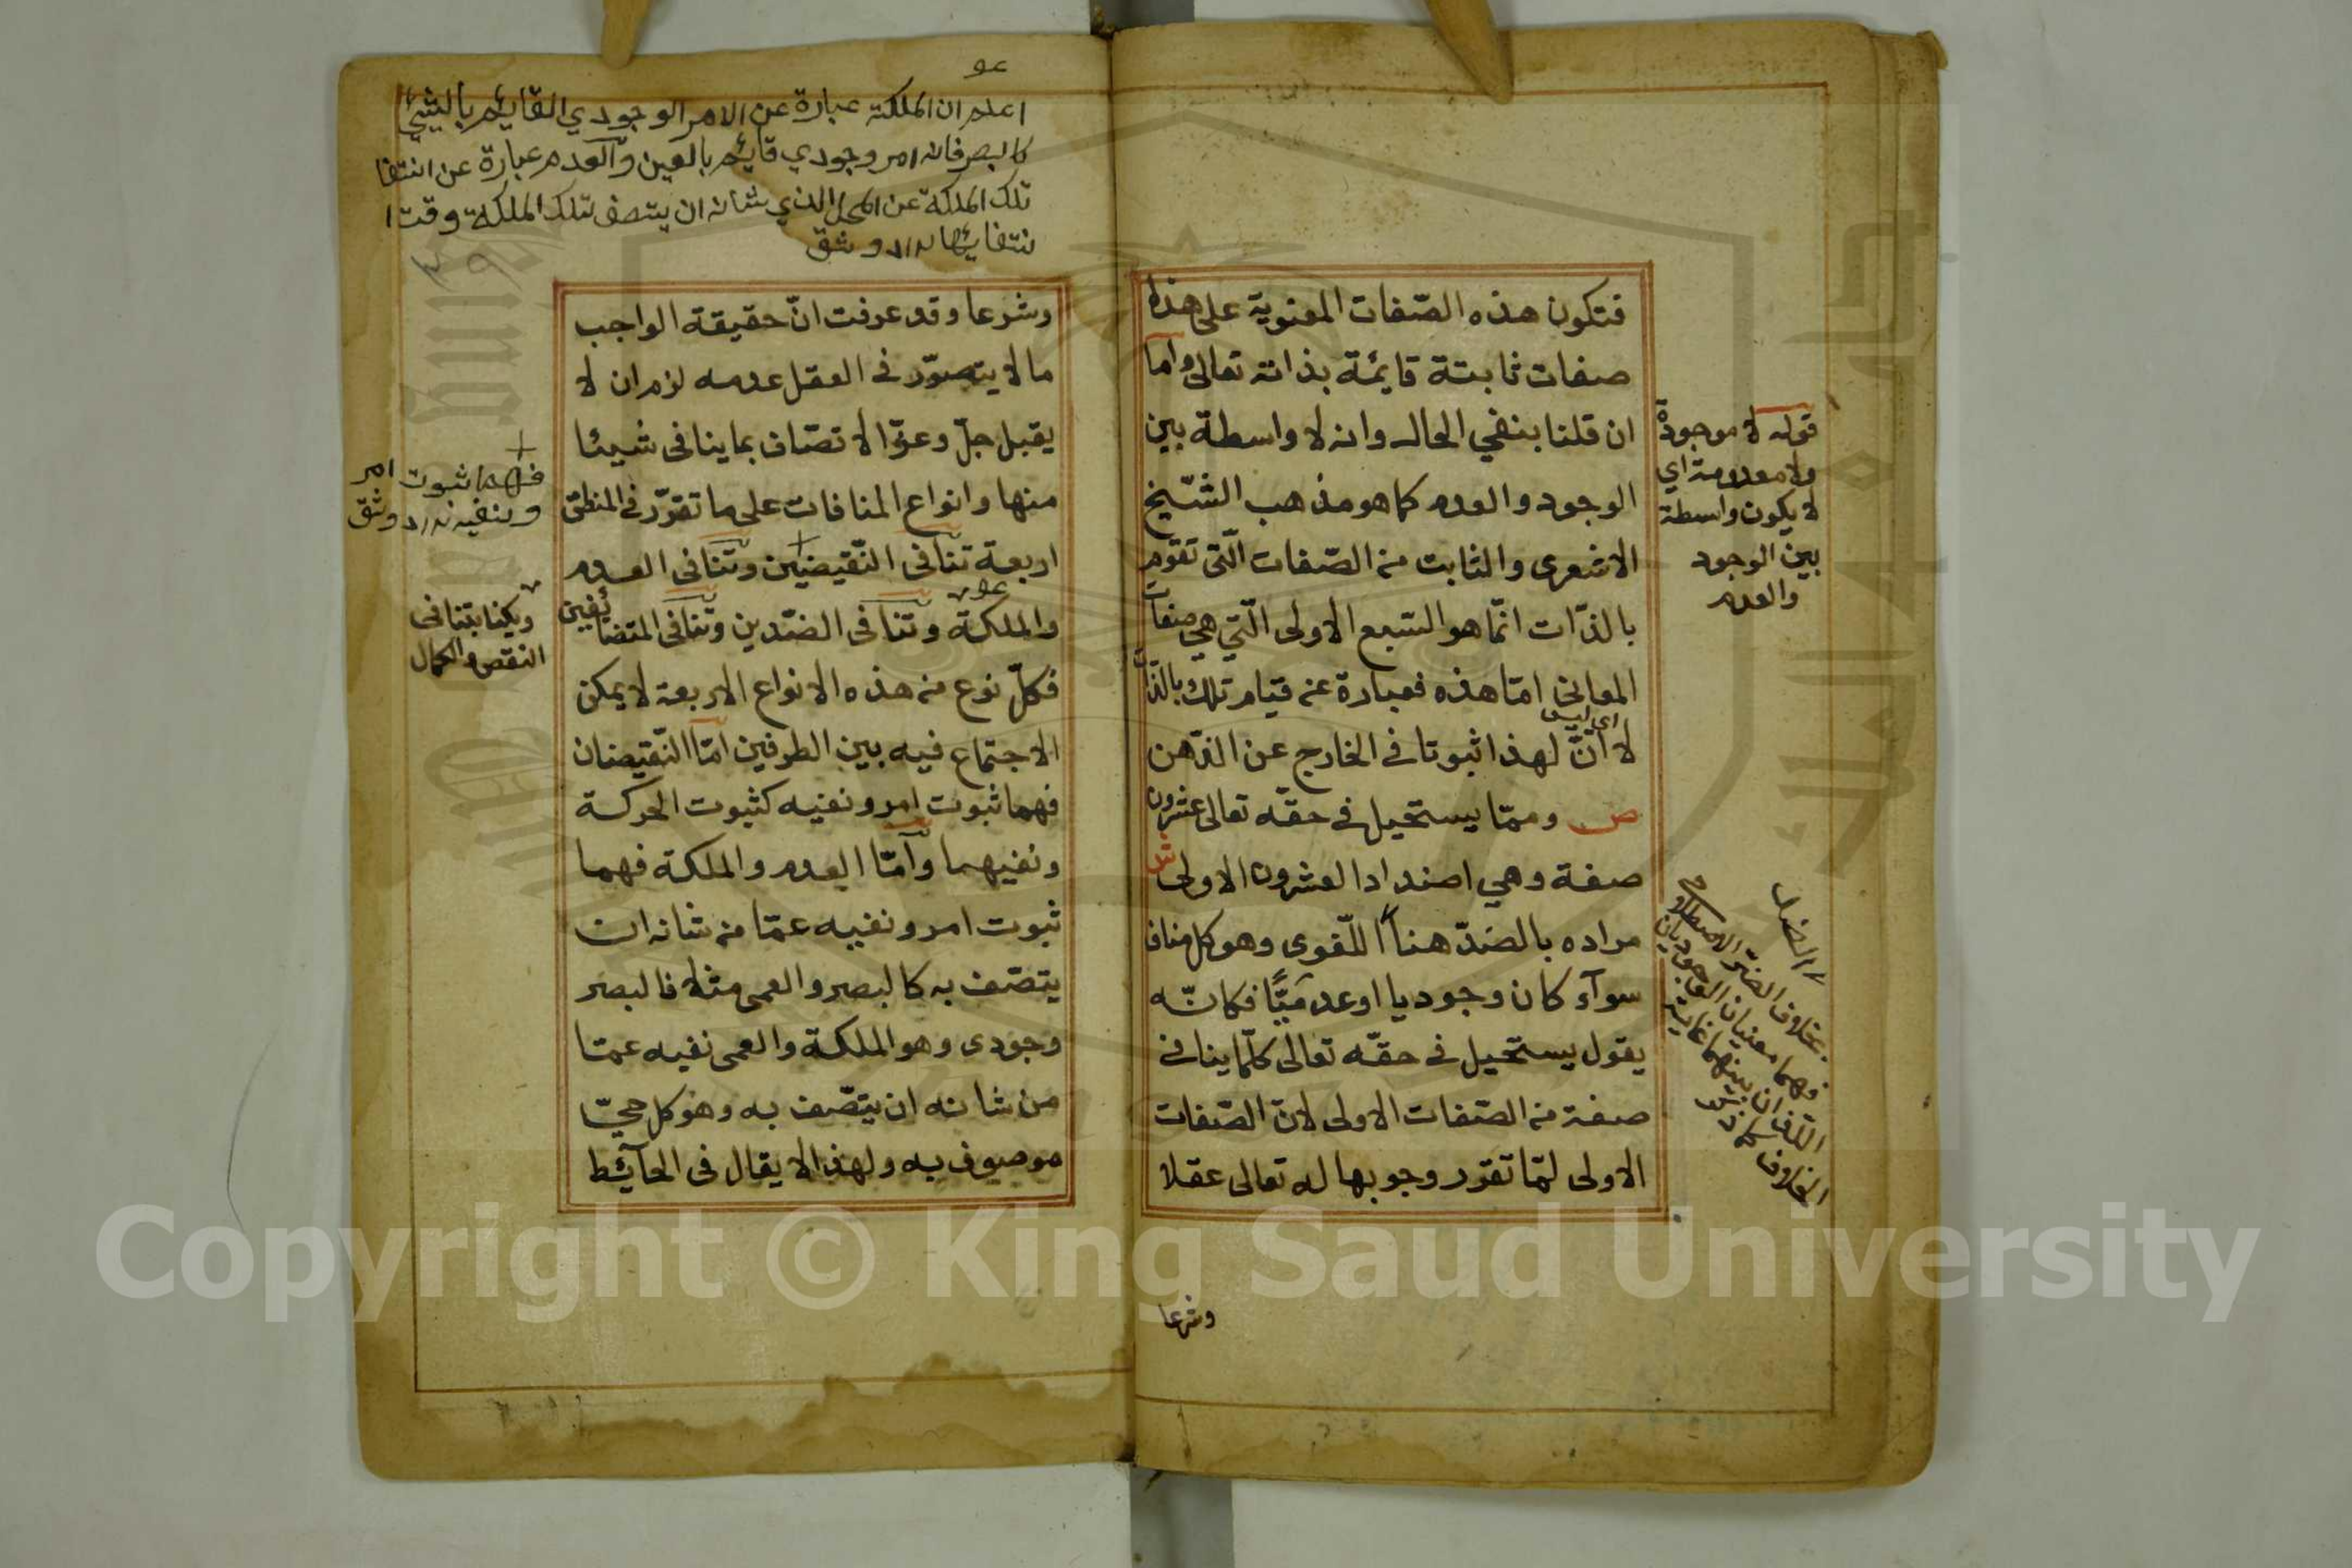 فتكون هذه الصّفات المعنوية على هذا
صفات ثابتة قايمة بذاته تعالى واما
ان قلنا بنفي الحال وانه لا واسطة بين
الوجود والعدم كما هو مذهب الشّيخ
الاشعرى والثابت من الصّفات الّتى تقوم
بالذّات انّما هو السّبع الأولى الّتي هي صفات
المعانى امّا هذه فعبارة عن قيام تلك بالذّات
اى ليس
لا انّ لهذا ثبوتا فى الخارج عن الذّهن
ص وممّا يستحيل فى حقّه تعالى عشرون
صفة وهي اضداد العشرون الاولى ش
مراده بالضدّ هنا اللّغوى وهو كل مناف
سوآء كان وجوديا او عدميّا فكانّه
يقول يستحيل فى حقّه تعالى كلّما ينافى
صفة من الصّفات الاولى لانّ الصّفات
الاولى لمّا تقرر وجوبها له تعالى عقلا
وشرعا
قوله لا موجودة
ولا معدومة اي
لا يكون واسطة
بين الوجود
والعدم
بخلاف الضدّ
فهما معنيان الوجوديان
اللذان بينهما غاية
الخلاف
اعلم ان الملكة عبارة عن الامر الوجودي القايم بالشيئ
كالبصر فانه امر وجودي قايم بالعين والعدم عبارة عن انتفا
تلك الملكة عن المحل الذي شانه ان يتصف بتلك الملكة وقت ا
نتفايها
وشرعا وقد عرفت انّ حقيقة الواجب
ما لا يتصوّر فى العقل عدمه لزم ان لا
يقبل جلّ وعزّ الاتصّاف بما ينافى شيئا
منها وانواع المنافات على ما تقرّر فى المنطق
اربعة تنافى النّقيضين وتنافى العدم
والملكة وتنافى الضّدين وتنافى المتضائفين
فكلّ نوع من هذه الانواع الاربعة لا يمكن
الاجتماع فيه بين الطرفين امّا النّقيضان
فهما ثبوت امر ونفيه كثبوت الحركة
ونفيهما وامّا العدم والملكة فهما
ثبوت امر ونفيه عمّا من شانه ان
يتصّف به كالبصر والعمى مثلا فالبصر
وجودى وهو الملكة والعمى نفيه عمّا
من شانه ان يتّصف به وهو كل حيّ
موصوف به ولهذا لا يقال فى الحآئط
فهما ثبوت امر
ونفيه
النقص والكمال
Copyright © King Saud University